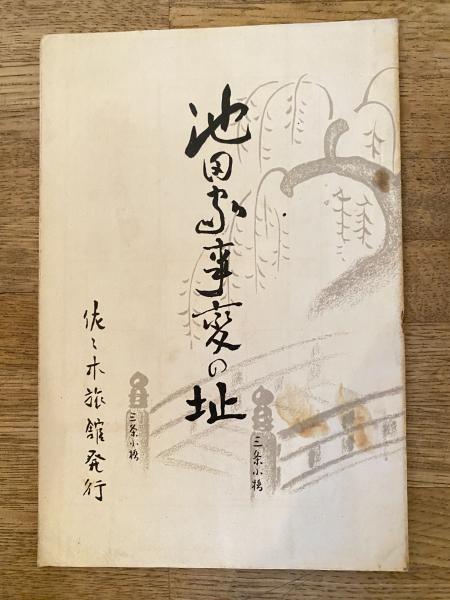 池田家事変の址
三条小橋
三条小橋
佐々木旅館発行